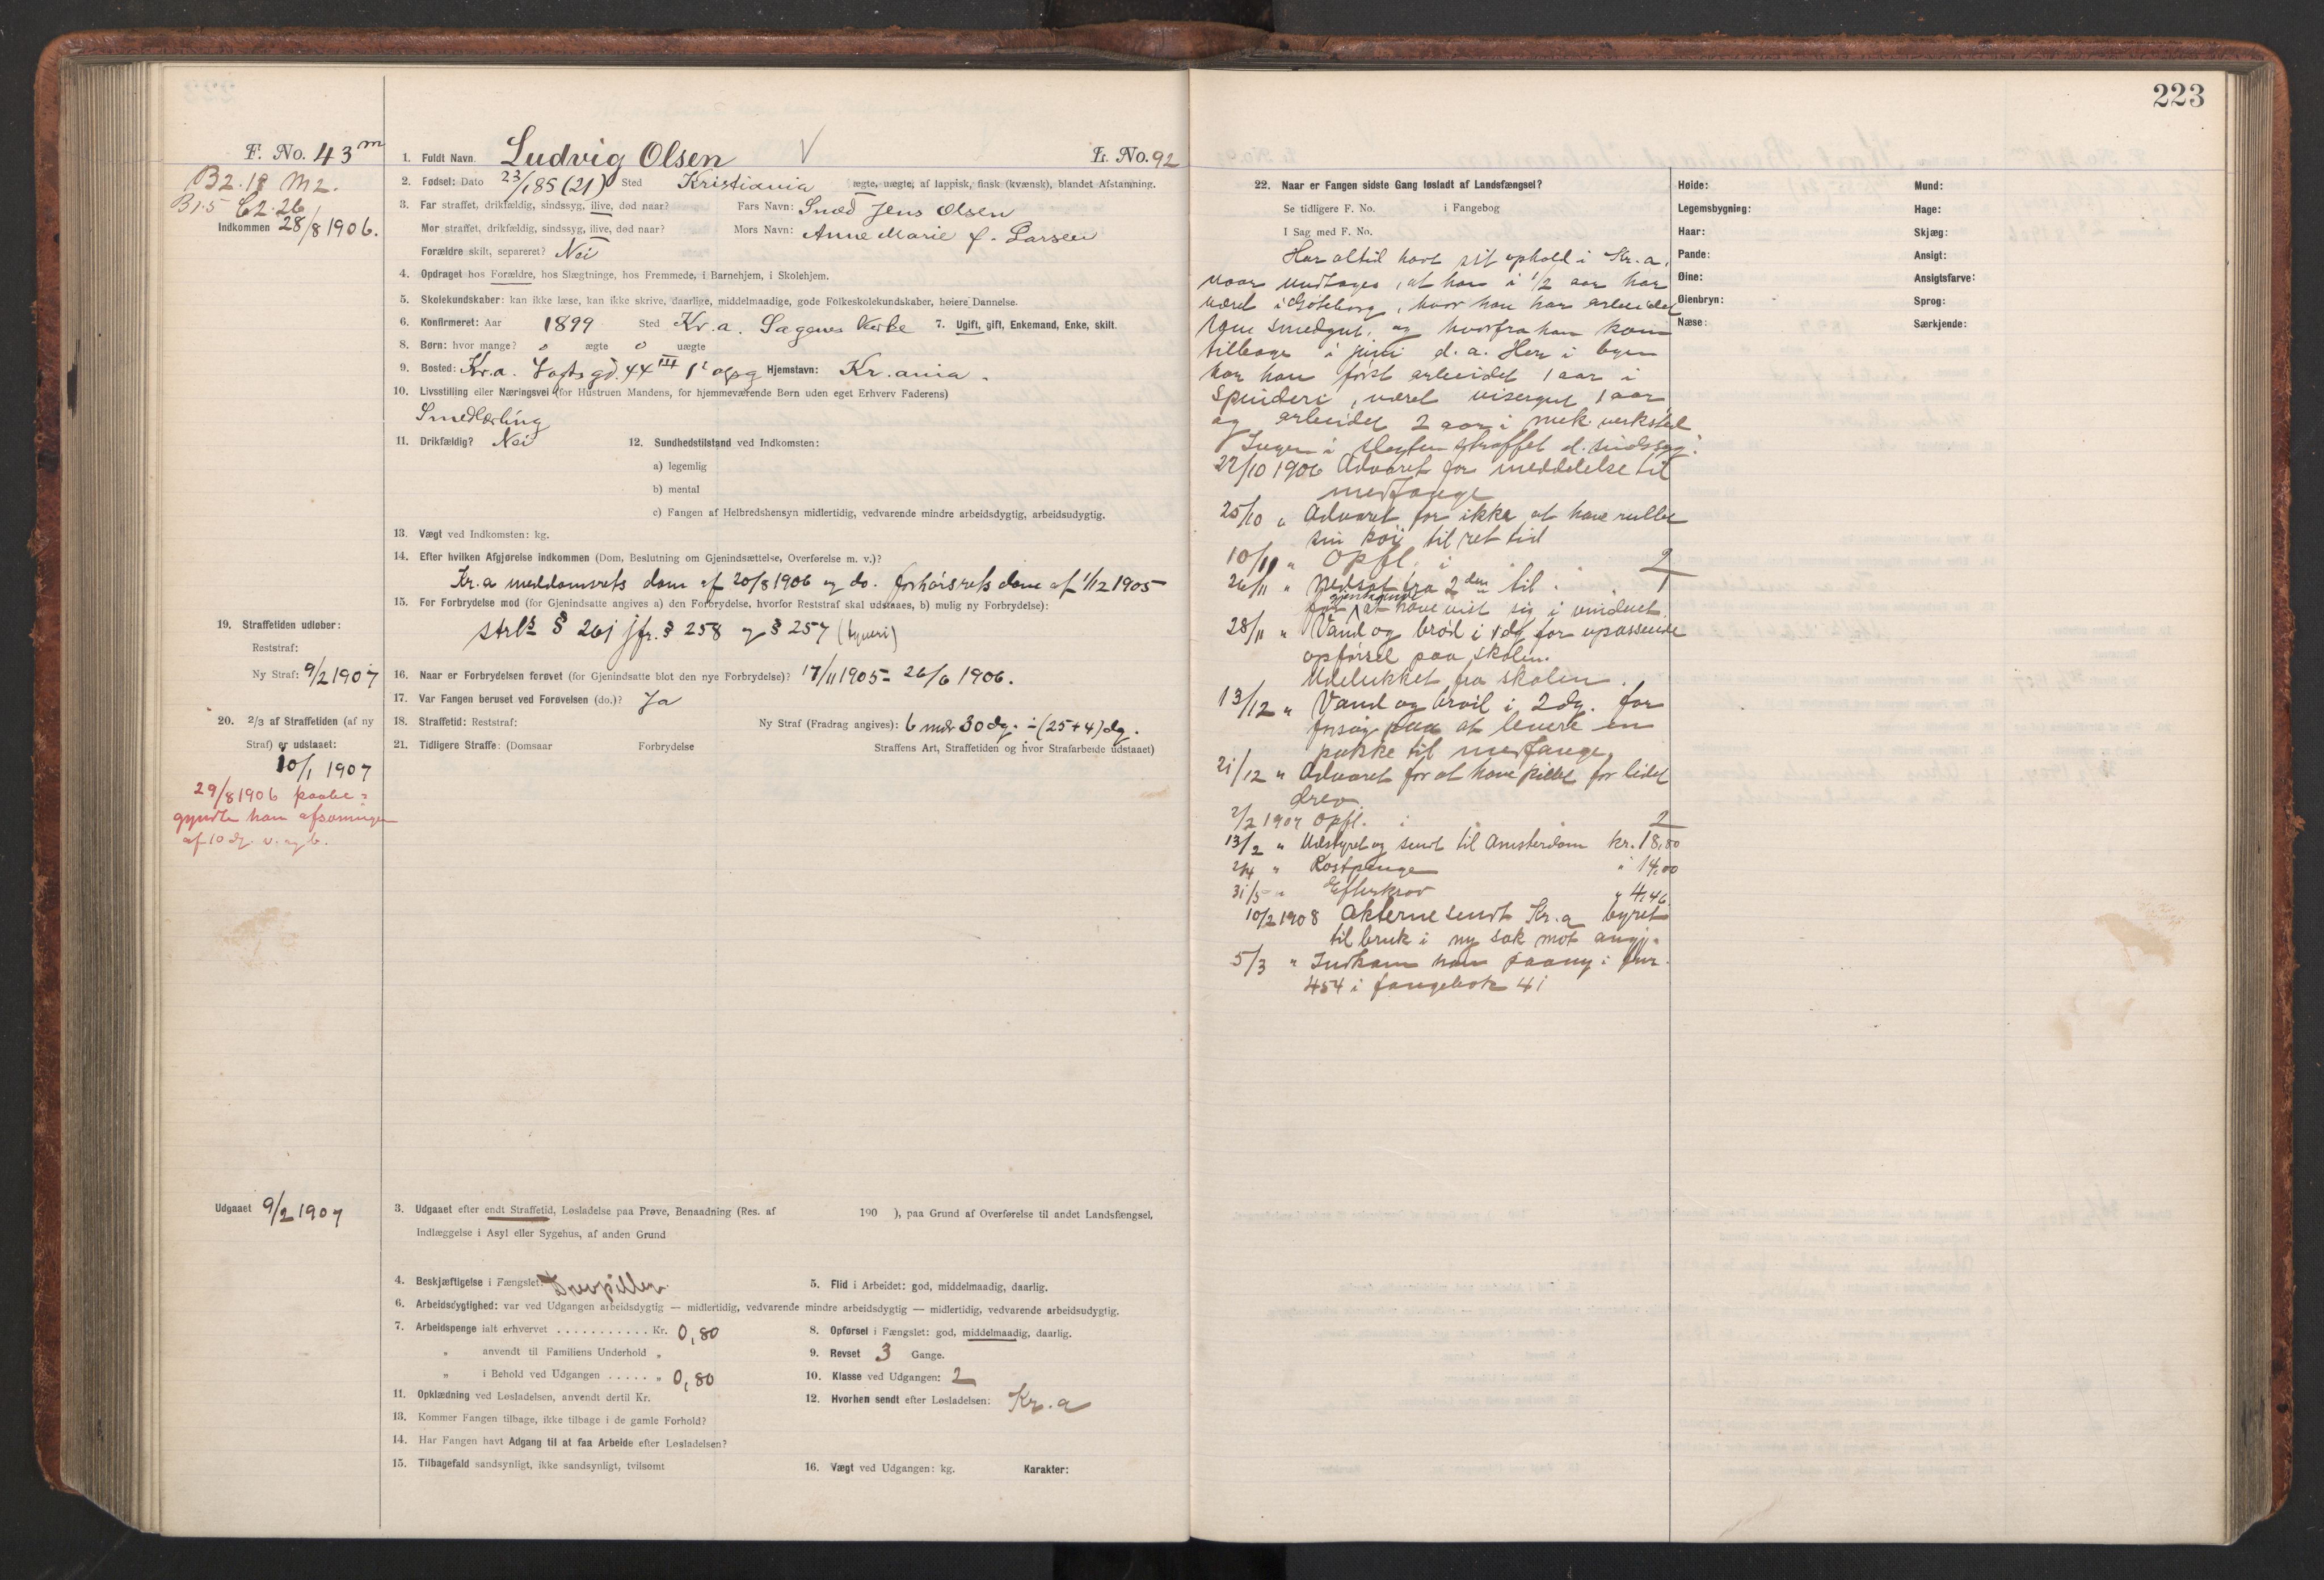 223
F. No. 43 m
B2.18 M2.
B1.5 C2.26
Indkommen 28/8 1906.
1. Fuldt Navn. Ludvig Olsen V L. No. 92
2. Fødsel: Dato 23/1 85 (21) Sted Kristiania ægte, uægte, af lappisk, finsk (kvænsk), blandet Afstamning.
3. Far straffet, drikfældig, sindssyg, ilive, død naar? Fars Navn: Smed Jens Olsen
Mor straffet, drikfældig, sindssyg, ilive, død naar? Mors Navn: Anne Marie f. Larsen
Forældre skilt, separeret? Nei
4. Opdraget hos Forældre, hos Slægtninge, hos Fremmede, i Barnehjem, i Skolehjem.
5. Skolekundskaber: kan ikke læse, kan ikke skrive, daarlige, middelmaadige, gode Folkeskolekundskaber, høiere Dannelse.
6. Konfirmeret: Aar 1899 Sted Kr.a. Sagenes Kirke 7. Ugift, gift, Enkemand, Enke, skilt.
8. Børn: hvor mange? 0 ægte 0 uægte
9. Bosted: Kr.a. gd. 44 III opg Hjemstavn: Kr.ania.
10. Livsstilling eller Næringsvei (for Hustruen Mandens, for hjemmeværende Børn uden eget Erhverv Faderens)
Smedlærling
11. Drikfældig? Nei 12. Sundhedstilstand ved Indkomsten:
a) legemlig
b) mental
c) Fangen af Helbredshensyn midlertidig, vedvarende mindre arbeidsdygtig, arbeidsudygtig.
13. Vægt ved Indkomsten: kg.
14. Efter hvilken Afgjørelse indkommen (Dom, Beslutning om Gjenindsættelse, Overførelse m. v.)?
Kr.a meddomsrets dom af 20/8 1906 og do. forhørsrets dom af 1/12 1905
15. For Forbrydelse mod (for Gjenindsatte angives a) den Forbrydelse, hvorfor Reststraf skal udstaaes, b) mulig ny Forbrydelse):
strl § 261 jfr. § 258 og § 257 (tyveri)
19. Straffetiden udløber:
Reststraf:
Ny Straf: 9/2 1907
16. Naar er Forbrydelsen forøvet (for Gjenindsatte blot den nye Forbrydelse)? 17/11 1905 - 26/6 1906.
17. Var Fangen beruset ved Forøvelsen (do.)? Ja
20. 2/3 af Straffetiden (af ny
Straf) er udstaaet:
10/1 1907
18. Straffetid: Reststraf: Ny Straf (Fradrag angives): 6 mdr 30 dg. ÷ (25+4) dg.
21. Tidligere Straffe: (Domsaar Forbrydelse Straffens Art, Straffetiden og hvor Strafarbeide udstaaet)
29/8 1906 paabe=
gyndte han afsoningen
af 10 dg. v. og b.
Udgaaet 9/2 1907
3. Udgaaet efter endt Straffetid, Løsladelse paa Prøve, Benaadning (Res. af 190 ), paa Grund af Overførelse til andet Landsfængsel,
Indlæggelse i Asyl eller Sygehus, af anden Grund
4. Beskjæftigelse i Fængslet: Drevpiller 5. Flid i Arbeidet: god, middelmaadig, daarlig.
6. Arbeidsdygtighed: var ved Udgangen arbeidsdygtig — midlertidig, vedvarende mindre arbeidsdygtig — midlertidig, vedvarende arbeidsudygtig.
7. Arbeidspenge ialt erhvervet . . . . . . . . . . . Kr. 0,80 8. Opførsel i Fængslet: god, middelmaadig, daarlig.
" anvendt til Familiens Underhold " 9. Revset 3 Gange.
" i Behold ved Udgangen . . . . . " 0,80 10. Klasse ved Udgangen: 2
11. Opklædning ved Løsladelsen, anvendt dertil Kr. 12. Hvorhen sendt efter Løsladelsen: Kr.a
13. Kommer Fangen tilbage, ikke tilbage i de gamle Forhold?
14. Har Fangen havt Adgang til at faa Arbeide efter Løsladelsen?
15. Tilbagefald sandsynligt, ikke sandsynligt, tvilsomt 16. Vægt ved Udgangen: kg. Karakter:
22. Naar er Fangen sidste Gang løsladt af Landsfængsel?
Se tidligere F. No. i Fangebog
I Sag med F. No.
Har altid havt sit ophold i Kr.a,
naar undtages, at han i 1/2 aar har
været i Göteborg, hvor han har arbeidet
som smedgut, og hvorfra han kom
tilbage i juni d.a. Her i byen
har han først arbeidet 1 aar i
Spinderi, været visergut 1 aar
og arbeidet 2 aar i mek. verksted
Ingen i slegten straffet el. sindssyg.
22/10 1906 Advaret for meddelelse til
medfange
25/10 " Advaret for ikke at have rullet
sin køi til ret tid
10/11 " Opfl. i 2
26/11 " Nedsat fra 2den til 1
for gjentagende at have vist sig i vinduet.
28/11 " Vand og brød i 1 dg for upassende
opførsel paa skolen.
Udelukket fra skolen.
13/12 " Vand og brød i 2 dg. for
forsøg paa at levere en
pakke til medfange.
21/12 " Advaret for at have pillet for lidet
drev.
2/2 1907 Opfl. i 2
13/2 " Udstyret og sendt til Amsterdam kr. 18,80
2/4 " Kostpenge " 14,00
31/5 " Efterkrav " 4,46
10/2 1908 Akterne sendt Kr.a byret
til bruk i ny sak mot angj.
5/3 " Indkom han paany i fnr.
454 i fangebok 41
Høide:
Legemsbygning:
Haar:
Pande:
Øine:
Øienbryn:
Næse:
Mund:
Hage:
Skjæg:
Ansigt:
Ansigtsfarve:
Sprog:
Særkjende: